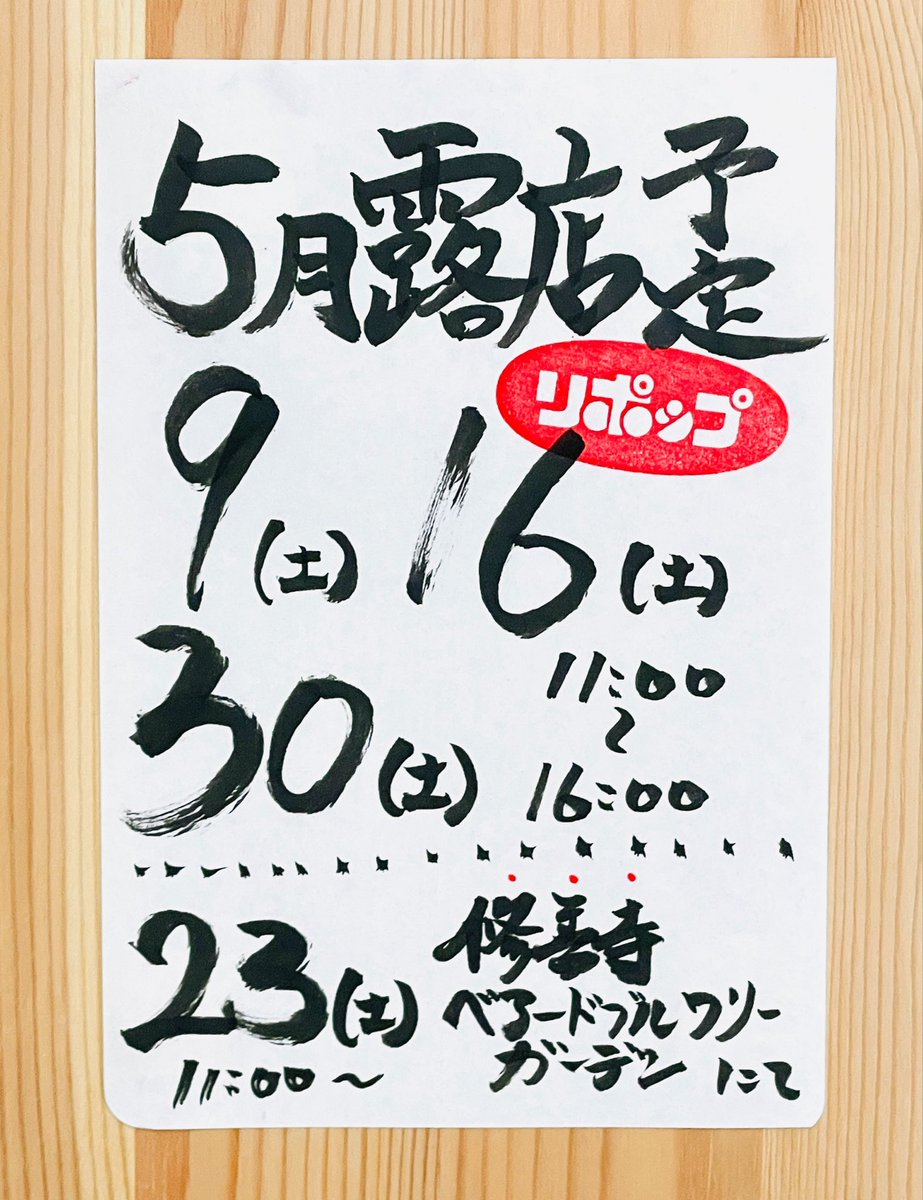 5月露店予定
リポップ
9(土) 16(土)
30(土) 11:00
〜
16:00
23(土) 修善寺
ベアードブルワリー
ガーデン にて
11:00〜